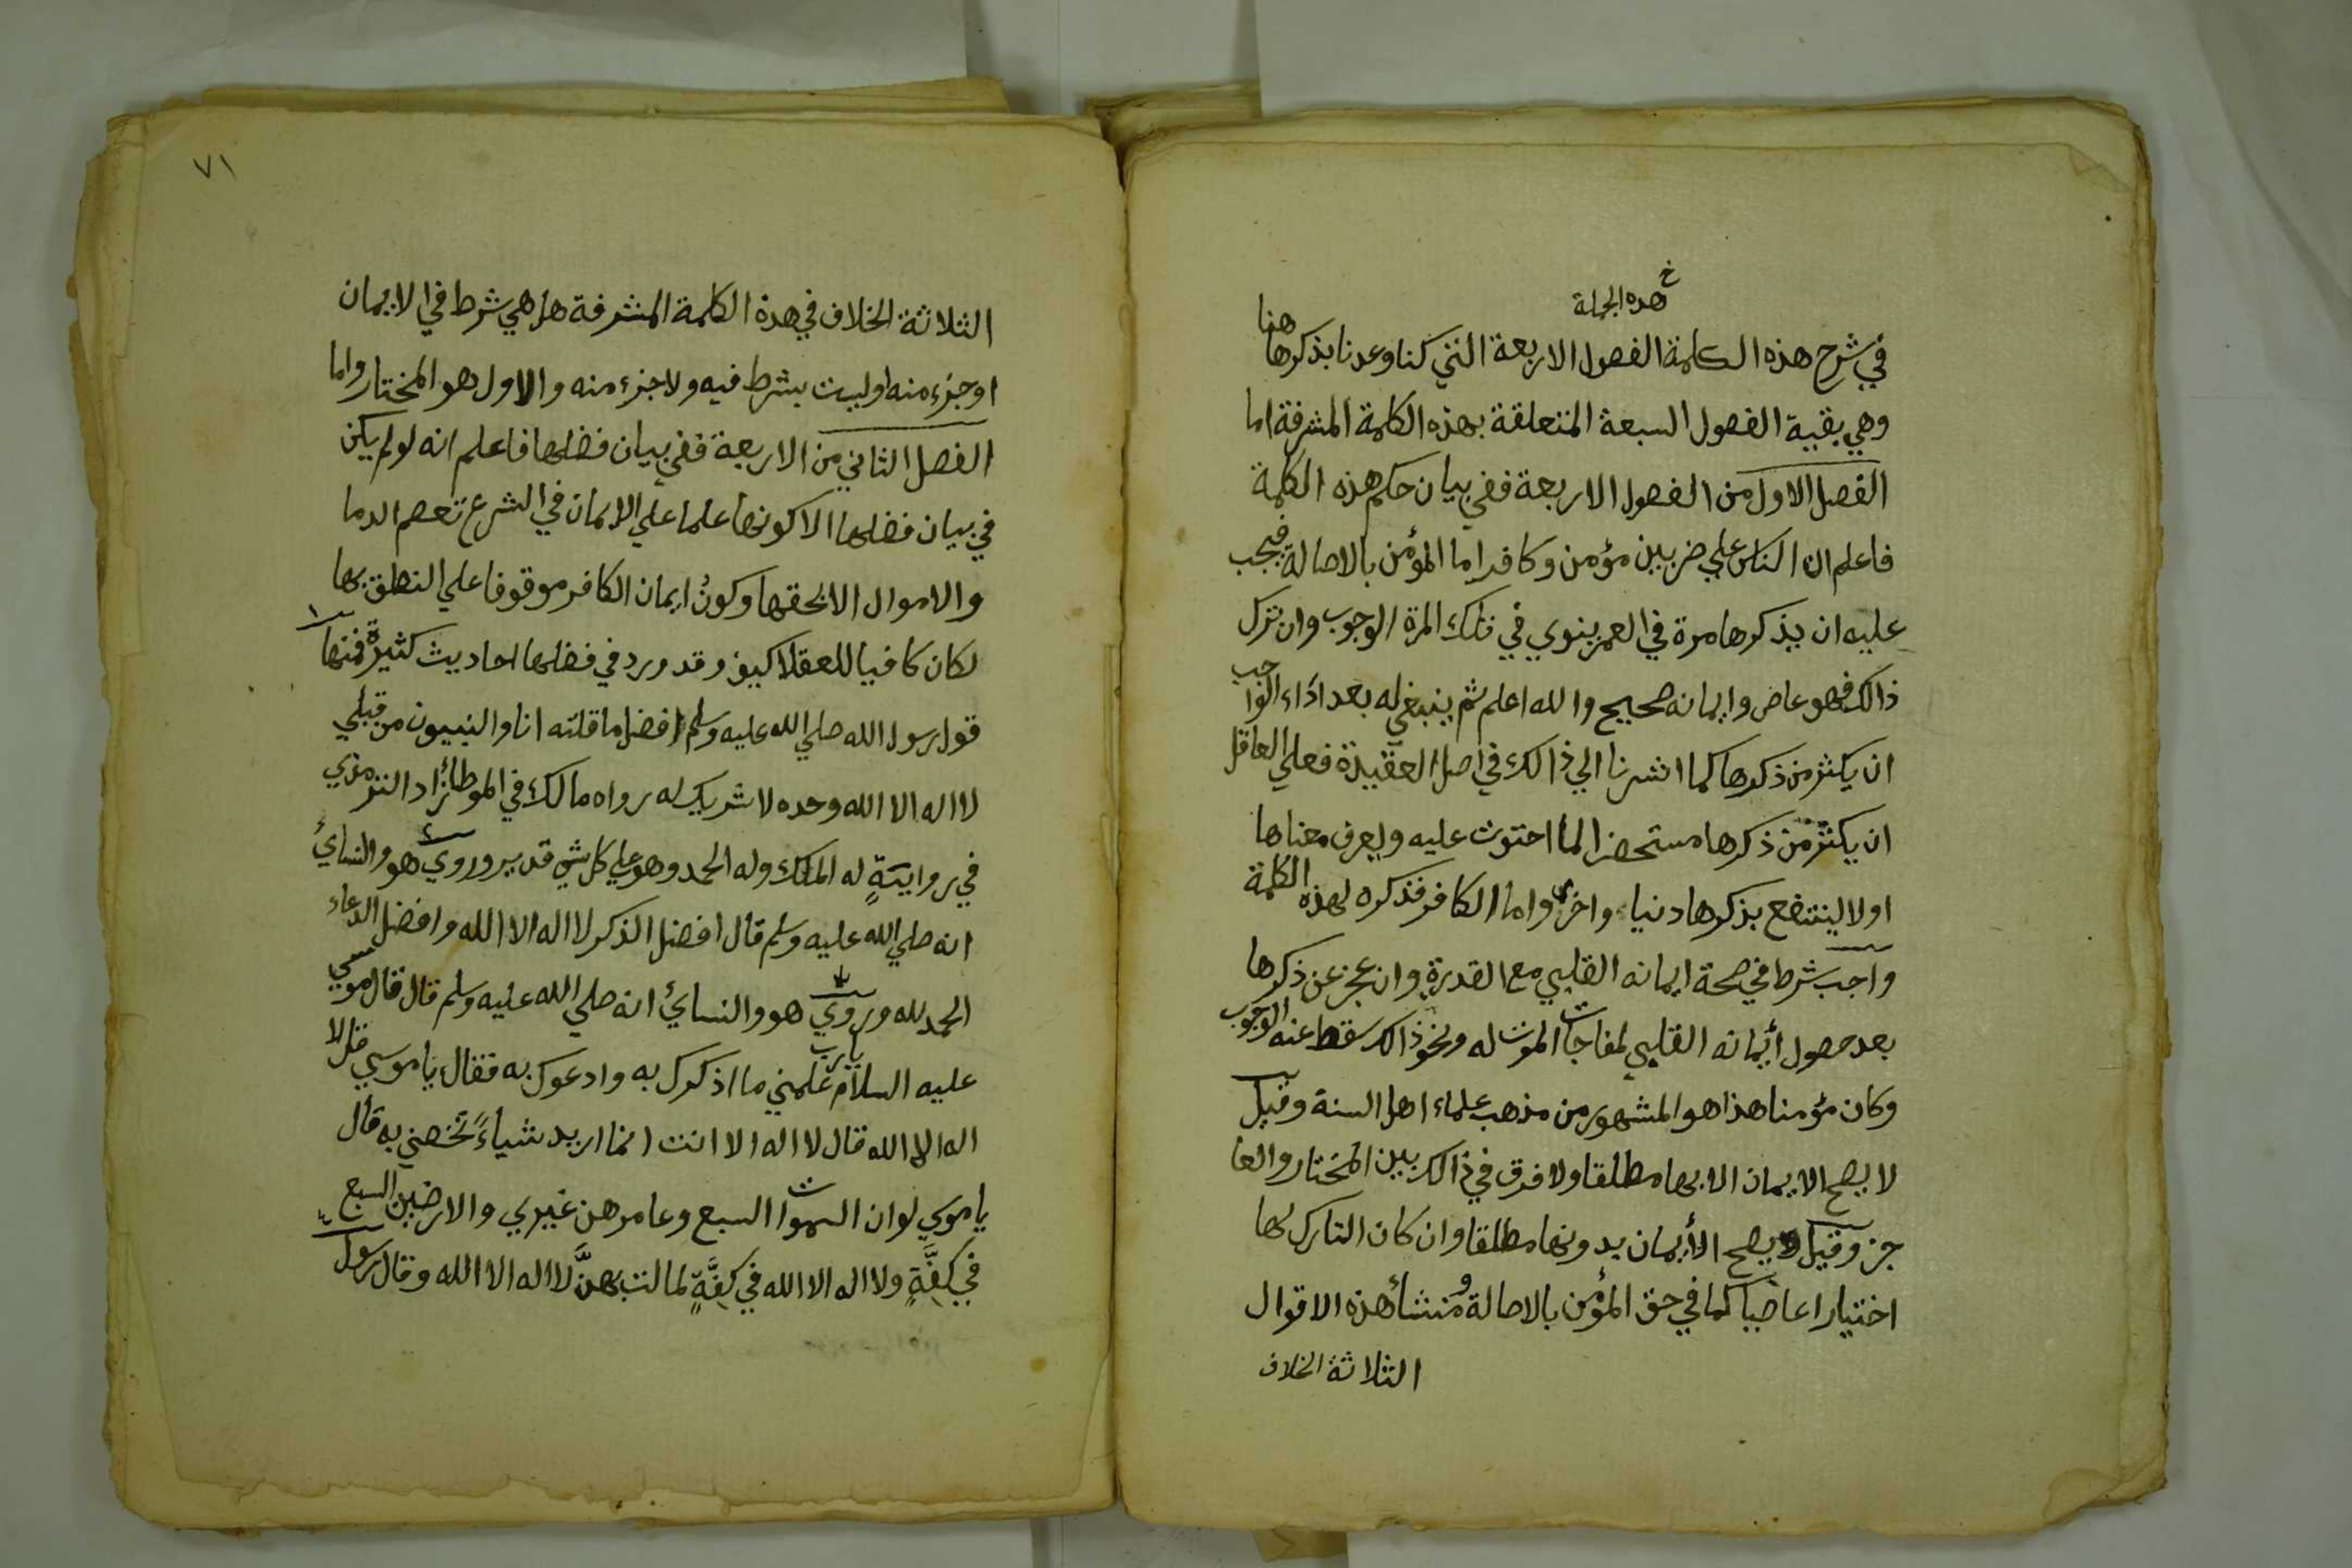 خ
هذه الجملة
في شرح هذه الكلمة الفصول الاربعة التي كنا وعدنا بذكرها هنا
وهي بقية الفصول السبعة المتعلقة بهذه الكلمة المشرفة اما
الفصل الاول من الفصول الاربعة ففي بيان حكم هذه الكلمة
فاعلم ان الناس علي ضربين مؤمن وكافر اما المؤمن بالاصالة فيجب
عليه ان يذكرها مرة في العمر ينوي في تلك المرة الوجوب وان ترك
ذالك فهو عاص وايمانه صحيح والله اعلم ثم ينبغي له بعد اداء الواجب
ان يكثر من ذكرها كما اشرنا الي ذالك في اصل العقيدة فعلي العاقل
ان يكثر من ذكرها مستحضرا لما احتوت عليه وليعرف معناها
اولا لينتفع بذكرها دنياء واخري واما الكافر فذكره لهذه الكلمة
واجب شرط في صحة ايمانه القلبي مع القدرة وان عجز عن ذكرها
بعد حصول أيمانه القلبي لمفاجات الموت له ونحو ذالك سقط عنه الوجوب
وكان مؤمنا هذا هو المشهور من مذهب علماء اهل السنة وقيل
لا يصح الايمان الا بها مطلقا ولا فرق في ذالك بين المختار والعا
جز وقيل يصح الأيمان بدونها مطلقا وان كان التارك لها
اختيارا عاصيا كما في حق المؤمن بالاصالة ومنشأ هذه الاقوال
الثلاثة الخلاف
٧١
الثلاثة الخلاف في هذة الكلمة المشرفة هل هي شرط في الايمان
اوجزء منه اوليست بشرط فيه ولا جزء منه والاول هو المختار واما
الفصل الثاني من الاربعة ففي بيان فضلها فاعلم انه لو لم يكن
في بيان فضلها الا كونها علما علي الايمان في الشرع تعصم الدما
والاموال الا بحقها وكون ايمان الكافر موقوفا علي النطق بها
لكان كافيا للعقلا كيف وقد ورد في فضلها احاديث كثيرة فمنها
قول رسول الله صلي الله عليه وسلم افضل ما قلته انا والنبيون من قبلي
لا اله الا الله وحده لا شريك له رواه مالك في الموطأ زاد الترمذي
في روايةٍ له الملك وله الحمد وهو علي كل شي قدير وروي هو والنسايُ
انه صلي الله عليه وسلم قال افضل الذكر لا اله الا الله وافضل الدعاء
الحمد لله وروي هو والنسايُ انه صلي الله عليه وسلم قال قال موسي
عليه السلام يارب علمني ما اذكرك به وادعوك به فقال يا موسي قل لا
اله الا الله قال لا اله الا انت انما اريد شياءً تخصني به قال
يا موسي لو ان السموات السبع وعامرهن غيري والارضين السبع
في كِفَّةٍ ولا اله الا الله في كِفَّةٍ لمالت بهنَّ لا اله الا الله وقال رسول